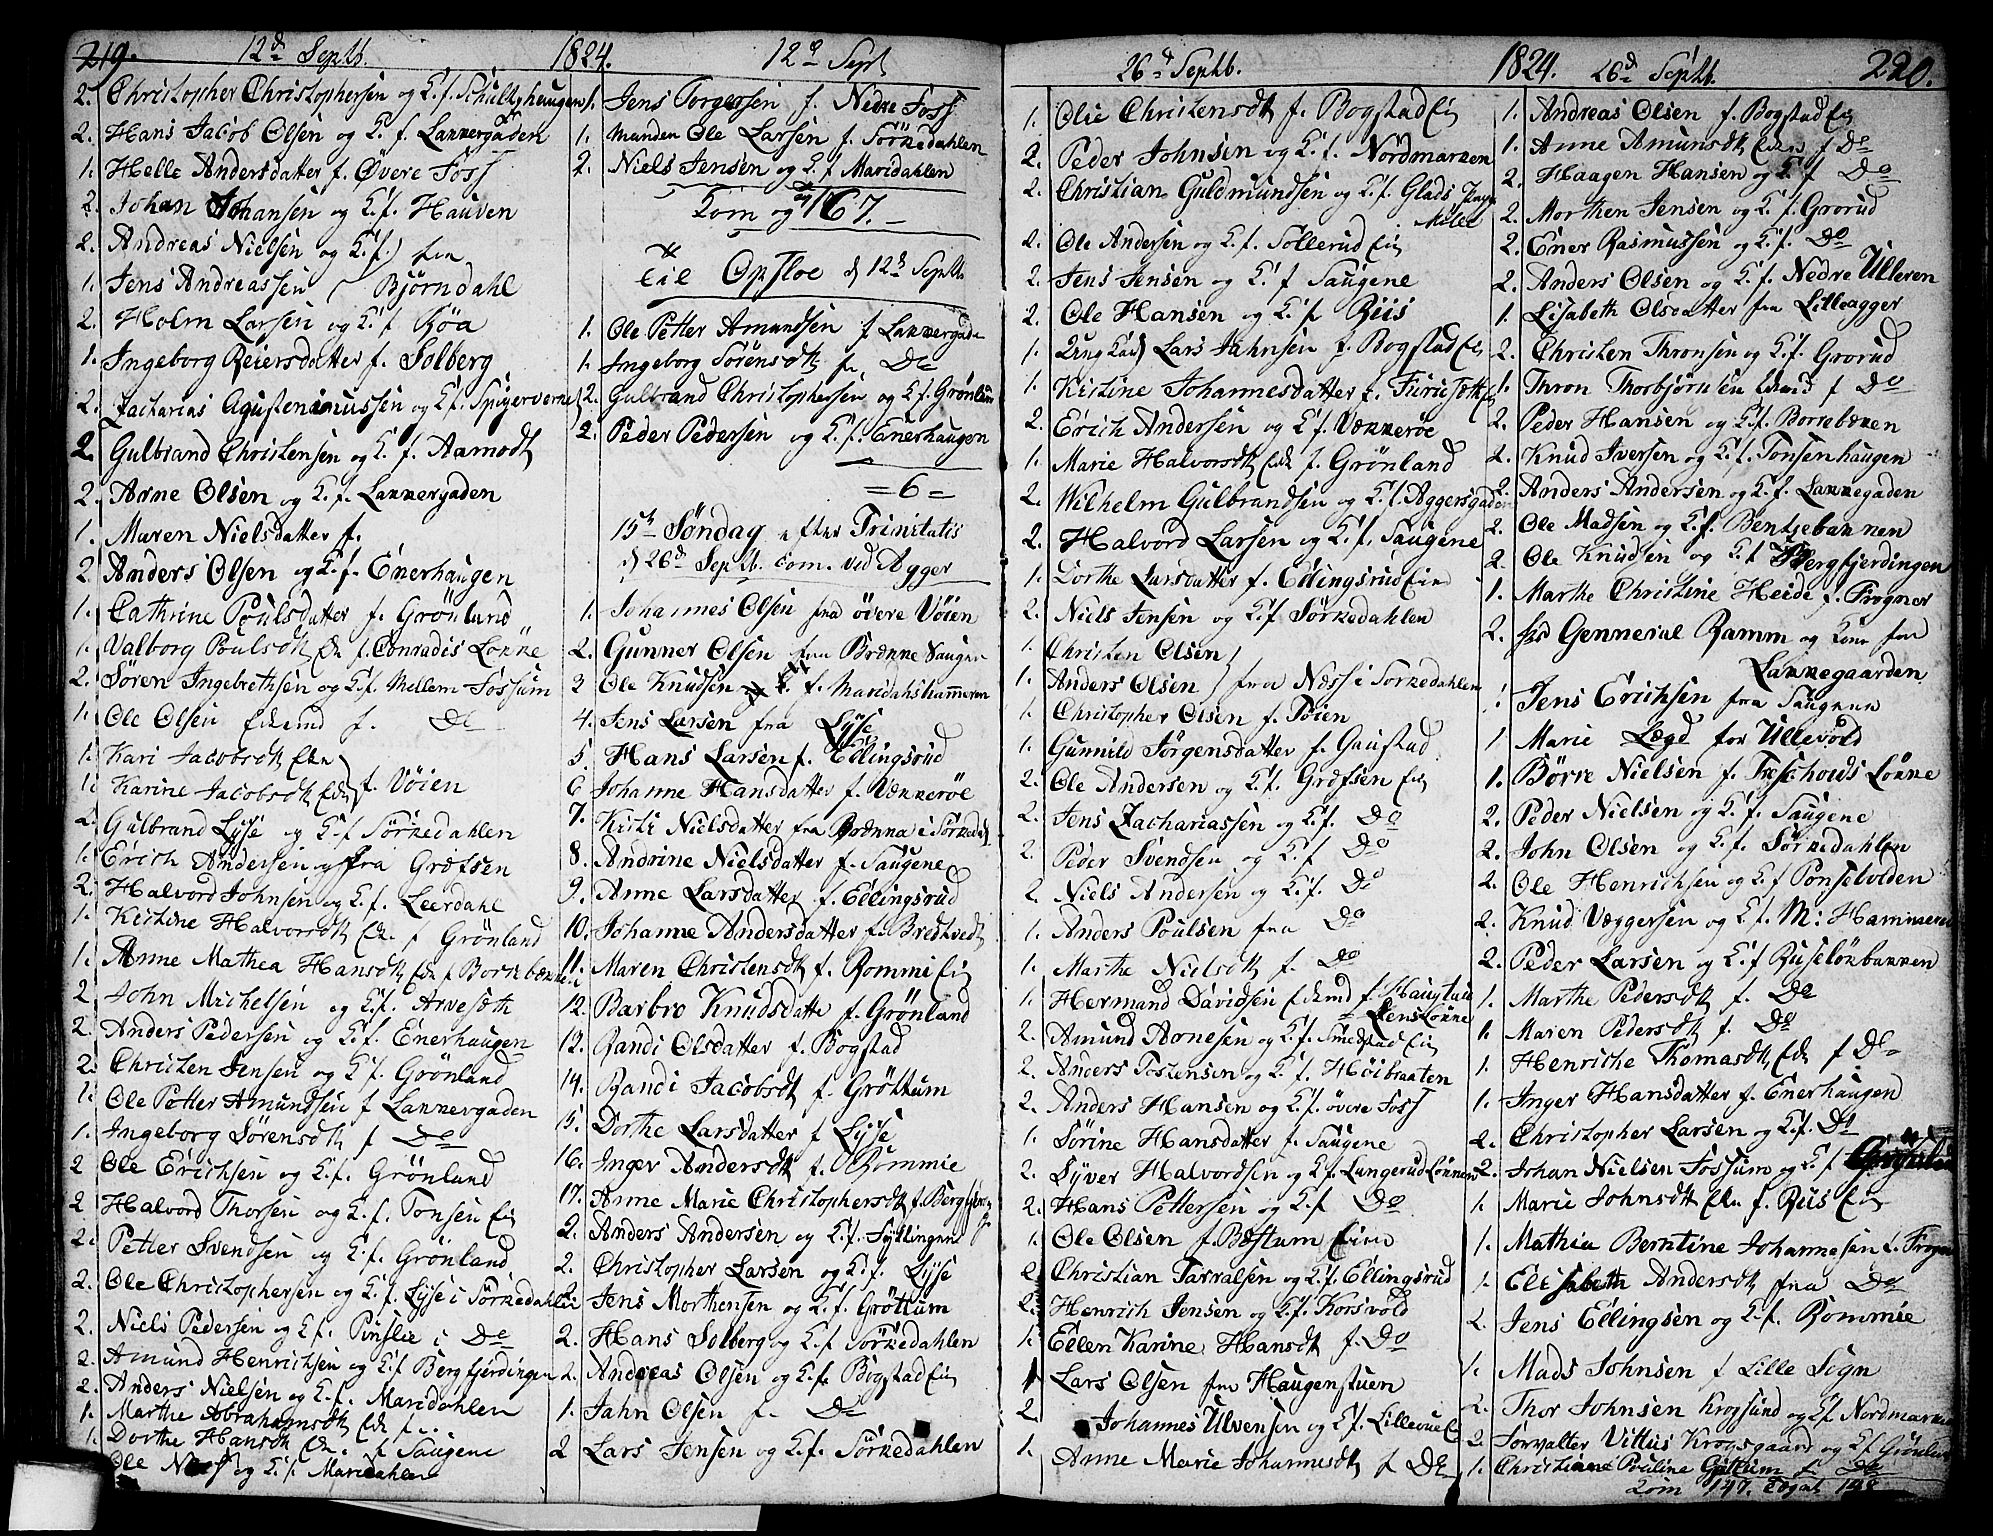 219. 12d Septb. 1824. 12d Sept
2. Christopher Christophersen og K. f. Schultzhaugen
2. Hans Jacob Olsen og K. f. Lakkergaden
1. Helle Andersdatter f. Øvere Foss
2. Johan Johansen og K. f. Hauven
2. Andreas Nielsen og K. f.
1. Jens Andreassen } fra Bjørndahl
2. Holm Larsen og K. f. Røa
1. Ingeborg Reiersdatter f. Solberg
2. Zacharias Agustenimussen og K. f. Spigerverket
2. Gulbrand Christensen og K. f. Aamodt
2. Arne Olsen og K. f. Lakkergaden
1. Maren Nielsdatter f.
2. Anders Olsen og K. f. Enerhaugen
1. Cathrine Poulsdatter f. Grönland
1. Valborg Poulsdt Ek f. Conradis Løkke
2. Sören Ingebrethsen og K. f. Mellem Fossum
1. Ole Olsen Ekmd f. Do
1. Kari Jacobsdt Ekn
1. Karine Jacobsdt Ek } f. Vöien
2. Gulbrand Lyse og K. f. Sørkedahlen
1. Erich Andersen og fra Græfsen
2. Halvord Johnsen og K. f. Leerdahl
1. Kirstine Halvorsdt Ek f Grönland
1. Anne Mathea Hansdt Ek f Borkebækken
2. John Michelsen og K. f. Arvesöth
2. Anders Pedersen og K. f. Enerhaugen
2. Christen Jensen og K. f. Grönland
1. Ole Petter Amundsen f Lakkergaden
1. Ingeborg Sörensdt f Do
2 Ole Erichsen og K. f. Grönland
2 Halvord Thorsen og K. f. Tonsen Eie
2. Petter Svendsen og K. f. Grönland
2. Ole Christophersen og K. f. Lyse i Sörkedahlen
2. Niels Pedersen og K. f. Pinslie i Do
2. Amund Henrichsen og K. f Bergfjerdingen
2. Anders Nielsen og K. f. Maridahlen
1. Marthe Abrahamsdt Ek f..
1. Dorthe Hansdt Ek. f Saugene
Ole og K. f. Maridahlen
1. Jens Torgersen f. Nedre Foss
1. Manden Ole Larsen f. Sörkedahlen
2. Niels Jensen og K. f Maridahlen
Kom og 167.
Til Opsloe d 12d Septb
1. Ole Petter Amundsen f Lakkergade
1. Ingeborg Sörensdt f. Do
2. Gulbrand Christophersen og K. f. Grönland
2. Peder Pedersen og K. f. Enerhaugen
= 6 =
15de Söndag efter Trinitatis
d 26d Septb. Com. ved Agger
1. Johannes Olsen fra övere Vöien
2. Gunner Olsen fra Brække Saugen
3 Ole Knudsen og K. f. Maridahshammeren
4. Jens Larsen fra Lyse
5. Hans Larsen f. Ellingsrud
6 Johanne Hansdatter f. Vækkeröe
7. Kirsti Nielsdatter fra Brenna i Sörkedal
8. Andrine Nielsdatter f. Saugene
9. Anne Larsdatter f. Ellingsrud
10. Johanne Andersdatter f. Bredtvedt
11. Maren Christensdt f. Rommi Eie
12. Barbro Knudsdatte f. Grönland
12. Randi Olsdatter f. Bogstad
14. Randi Jacobsdt f. Gröttum
15. Dorthe Larsdatter f Lyse
16. Inger Andersdt f. Rommie
17. Anne Marie Christophersdt f. Bergfjer.
2. Anders Andersen og K. f. Fyllingen
2. Christopher Larsen og K. f. Lyse
2. Jens Morthensen og K. f. Gröttum
2. Hans Solberg og K. f Sörkedahlen
2. Andreas Olsen og K. f. Bogstad Eie
1. Jahn Olsen f. Do
2 Lars Jensen og K. f. Sörkedahlen
26d Septb. 1824. 26d Septb. 220.
1. Olie Christensdt f. Bogstad Eie
2. Peder Johnsen og K. f. Nordmarken
2. Christian Guldmundsen og K. f. Glads
Mölle
2. Ole Andersen og K. f. Sollerud Eie
2. Jens Jensen og K. f Saugene
2. Ole Hansen og K. f Riis
1. Ung Karl Lars Jahnsen f. Bogstad Eie
1. Kirstine Johannesdatter f. Furuseth Eie
2. Erich Andersen og K. f. Vækkeröe
1. Marie Halvorsdt Ek f. Grönland
2. Wilhelm Gulbrandsen og K. f. Aggersgaden
2. Halvord Larsen og K. f. Saugene
1. Dorthe Larsdatter f. Ellingsrud Eie
2. Niels Jensen og K. f Sörkedahlen
1. Christen Olsen
1. Anders Olsen } fra Næss i Sörkedahlen
1. Christopher Olsen f. Töien
1. Gunnild Jörgensdatter f. Gaustad
2. Ole Andersen og K. f. Græfsen Eie
2. Jens Zachariassen og K. f. Do
2. Peder Svendsen og K. f Do
2. Niels Andersen og K. f. Do
1. Anders Poulsen fra Do
1. Marthe Nielsdt f. Do
1. Hermand Davidsen Ekmd f. Haugtu
Løkke
2. Amund Arnesen og K. f. Smedstad Eie
2. Anders Torstensen og K. f. Höibraaten
2. Anders Hansen og K. f. övere Foss
1. Sörine Hansdatter f. Saugene
2. Syver Halvordsen og K. f. Langerud Løkken
2. Hans Pettersen og K. f Do
1. Ole Olsen f. Bæstum Eien
2. Christian Tarralsen og K. f. Ellingsrud
2. Henrich Jensen og K. f. Korsvold
1. Ellen Karine Hansdt f. Do
1 Lars Olsen fra Haugenstuen
2 Johannes Ulvensen og K. f. Lilleruu Eie
1. Anne Marie Johannesdt f Do
1. Andreas Olsen f. Bogstad Eie
1. Anne Amundsdt Ekn f Do
2. Haagen Hansen og K. f Do
2. Morthen Jensen og K. f Grorud
2. Ener Rasmussen og K. f. Do
2. Anders Olsen og K. f. Nedre Ulleren
1. Lisabeth Olsdatter fra Lilleagger
2. Christen Thronsen og K. f. Grorud
1. Thron Thorbjörnsen Ekmd f Do
2. Peder Hansen og K. f. Borrebækken
2. Knud Iversen og K. f. Tonsenhaugen
2. Anders Andersen og K. f. Lakkegaden
2. Ole Madsen og K. f. Bentsebakken
2. Ole Knudsen og K. f Bergfjerdingen
1. Marthe Christine Heide f. Frogner
2. Genneral Ramm og Kone fra
Lakkegaarden
1 Jens Erichsen fra Saugene
1 Marie Lægd for Ullevold
1. Börre Nielsen f. Treschows Lökke
2. Peder Nielsen og K. f. Saugene
2. John Olsen og K. f. Sörkedahlen
2. Ole Henrichsen og K. f Ponselvolden
2. Knud Væggersen og K. f. M: Hammeren
2. Peder Larsen og K. f Ruselökbakken
1. Marthe Pedersdt f. Do
1. Maren Pedersdt f. Do
1. Henriche Thomasdt Ek f Do
1. Inger Hansdatter f. Enerhaugen
2. Christopher Larsen og K. f. Do
2. Johan Nielsen Fossum og K. f Grönland
1. Marie Johnsdt Ekn f. Riis Eie
1. Mathia Berntine Johannesen f. Frogne
1. Elisabeth Andersdt fra Do
2. Jens Ellingsen og K. f. Rommie
1. Mads Johnsen f Lille Sogn
2. Thor Johnsen Krogsund og K. f Nordmarken
2. Forvalter Vittus Krogsgaard og K. f Grönland
1. Christiane Pouline Gottum f. Do
Kom 147.